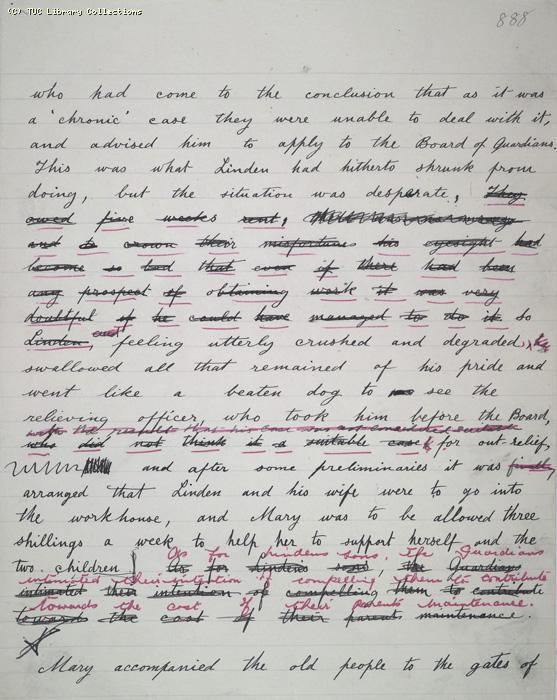 (C) TUC Library Collections
888
who had come to the conclusion that as it was
a 'chronic' case they were unable to deal with it,
and advised him to apply to the Board of Guardians.
This was what Linden had hitherto shrunk from
doing, but the situation was desperate, They
owed five weeks rent,
and to crown their misfortunes his eyesight had
become so bad that even if there had been
any prospect of obtaining work it was very
doubtful if he could have managed to do it. So
Linden, feeling utterly crushed and degraded, he
swallowed all that remained of his pride and
went like a beaten dog to see the
relieving officer, who took him before the Board,
who did not think it a suitable case for out relief,
and after some preliminaries it was finally
arranged that Linden and his wife were to go into
the workhouse, and Mary was to be allowed three
shillings a week to help her to support herself and the
As for Lindens sons, the Guardians
two children. As for Lindens sons, the Guardians
intimated their intention of compelling them to contribute
intimated their intention of compelling them to contribute
towards the cost of their parents' maintenance.
towards the cost of their parents maintenance.
Mary accompanied the old people to the gates of